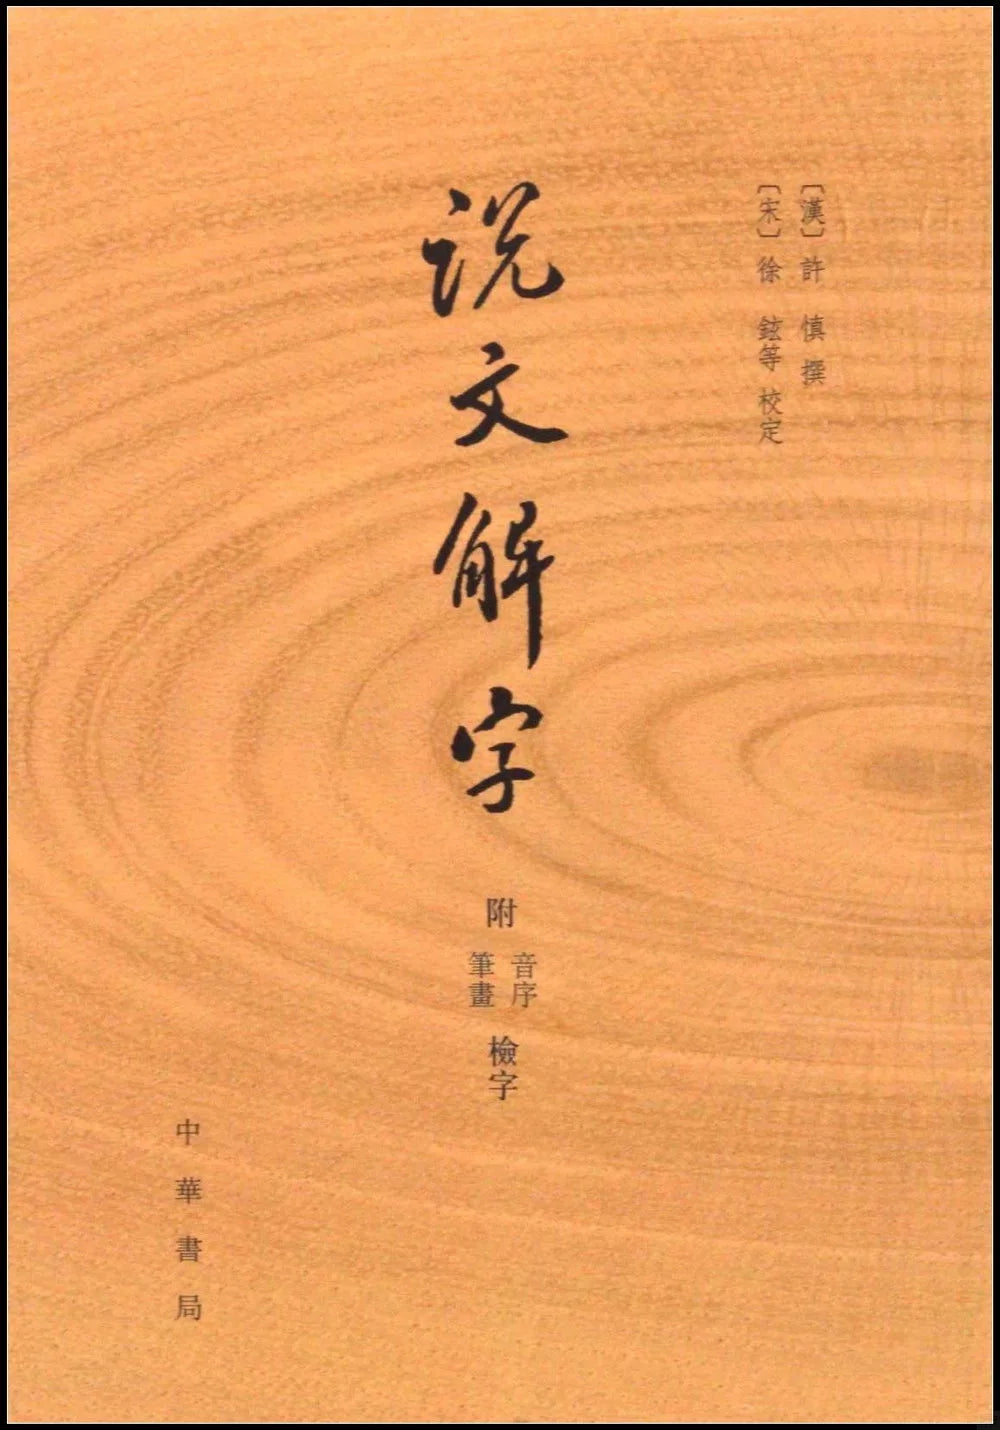 〔漢〕許 慎 撰
〔宋〕徐 鉉等 校定
说文解字
附
音序
筆畫
檢字
中華書局